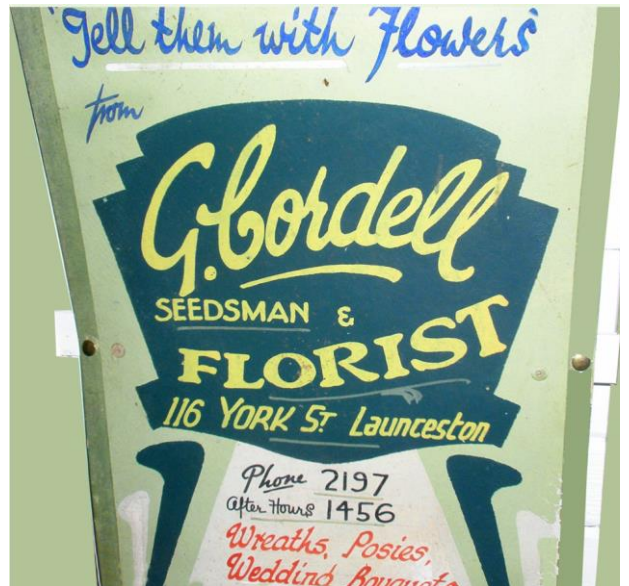 "Tell them with Flowers"
from
G. Cordell
SEEDSMAN &
FLORIST
116 YORK ST Launceston
Phone 2197
After Hours 1456
Wreaths, Posies,
Wedding Bouquets